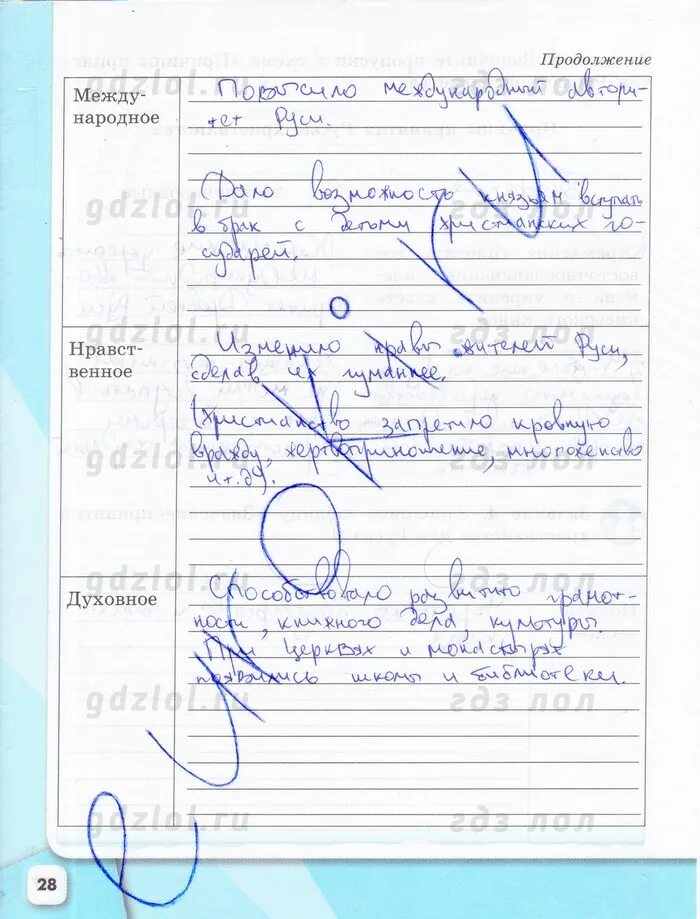 Продолжение
Между-
народное
Повысило международный автори-
тет Руси.
Дало возможность князьям вступать
в брак с детьми христианских го-
сударей.
Нравст-
венное
Изменило нравы жителей Руси,
сделав их гуманнее.
(Христианство запретило кровную
вражду, жертвоприношение, многоженство
и т.д).
Духовное
Способствовало развитию грамот-
ности, книжного дела, культуры.
При церквях и монастырях
появились школы и библиотеки.
gdzlol.ru гдз лол
28